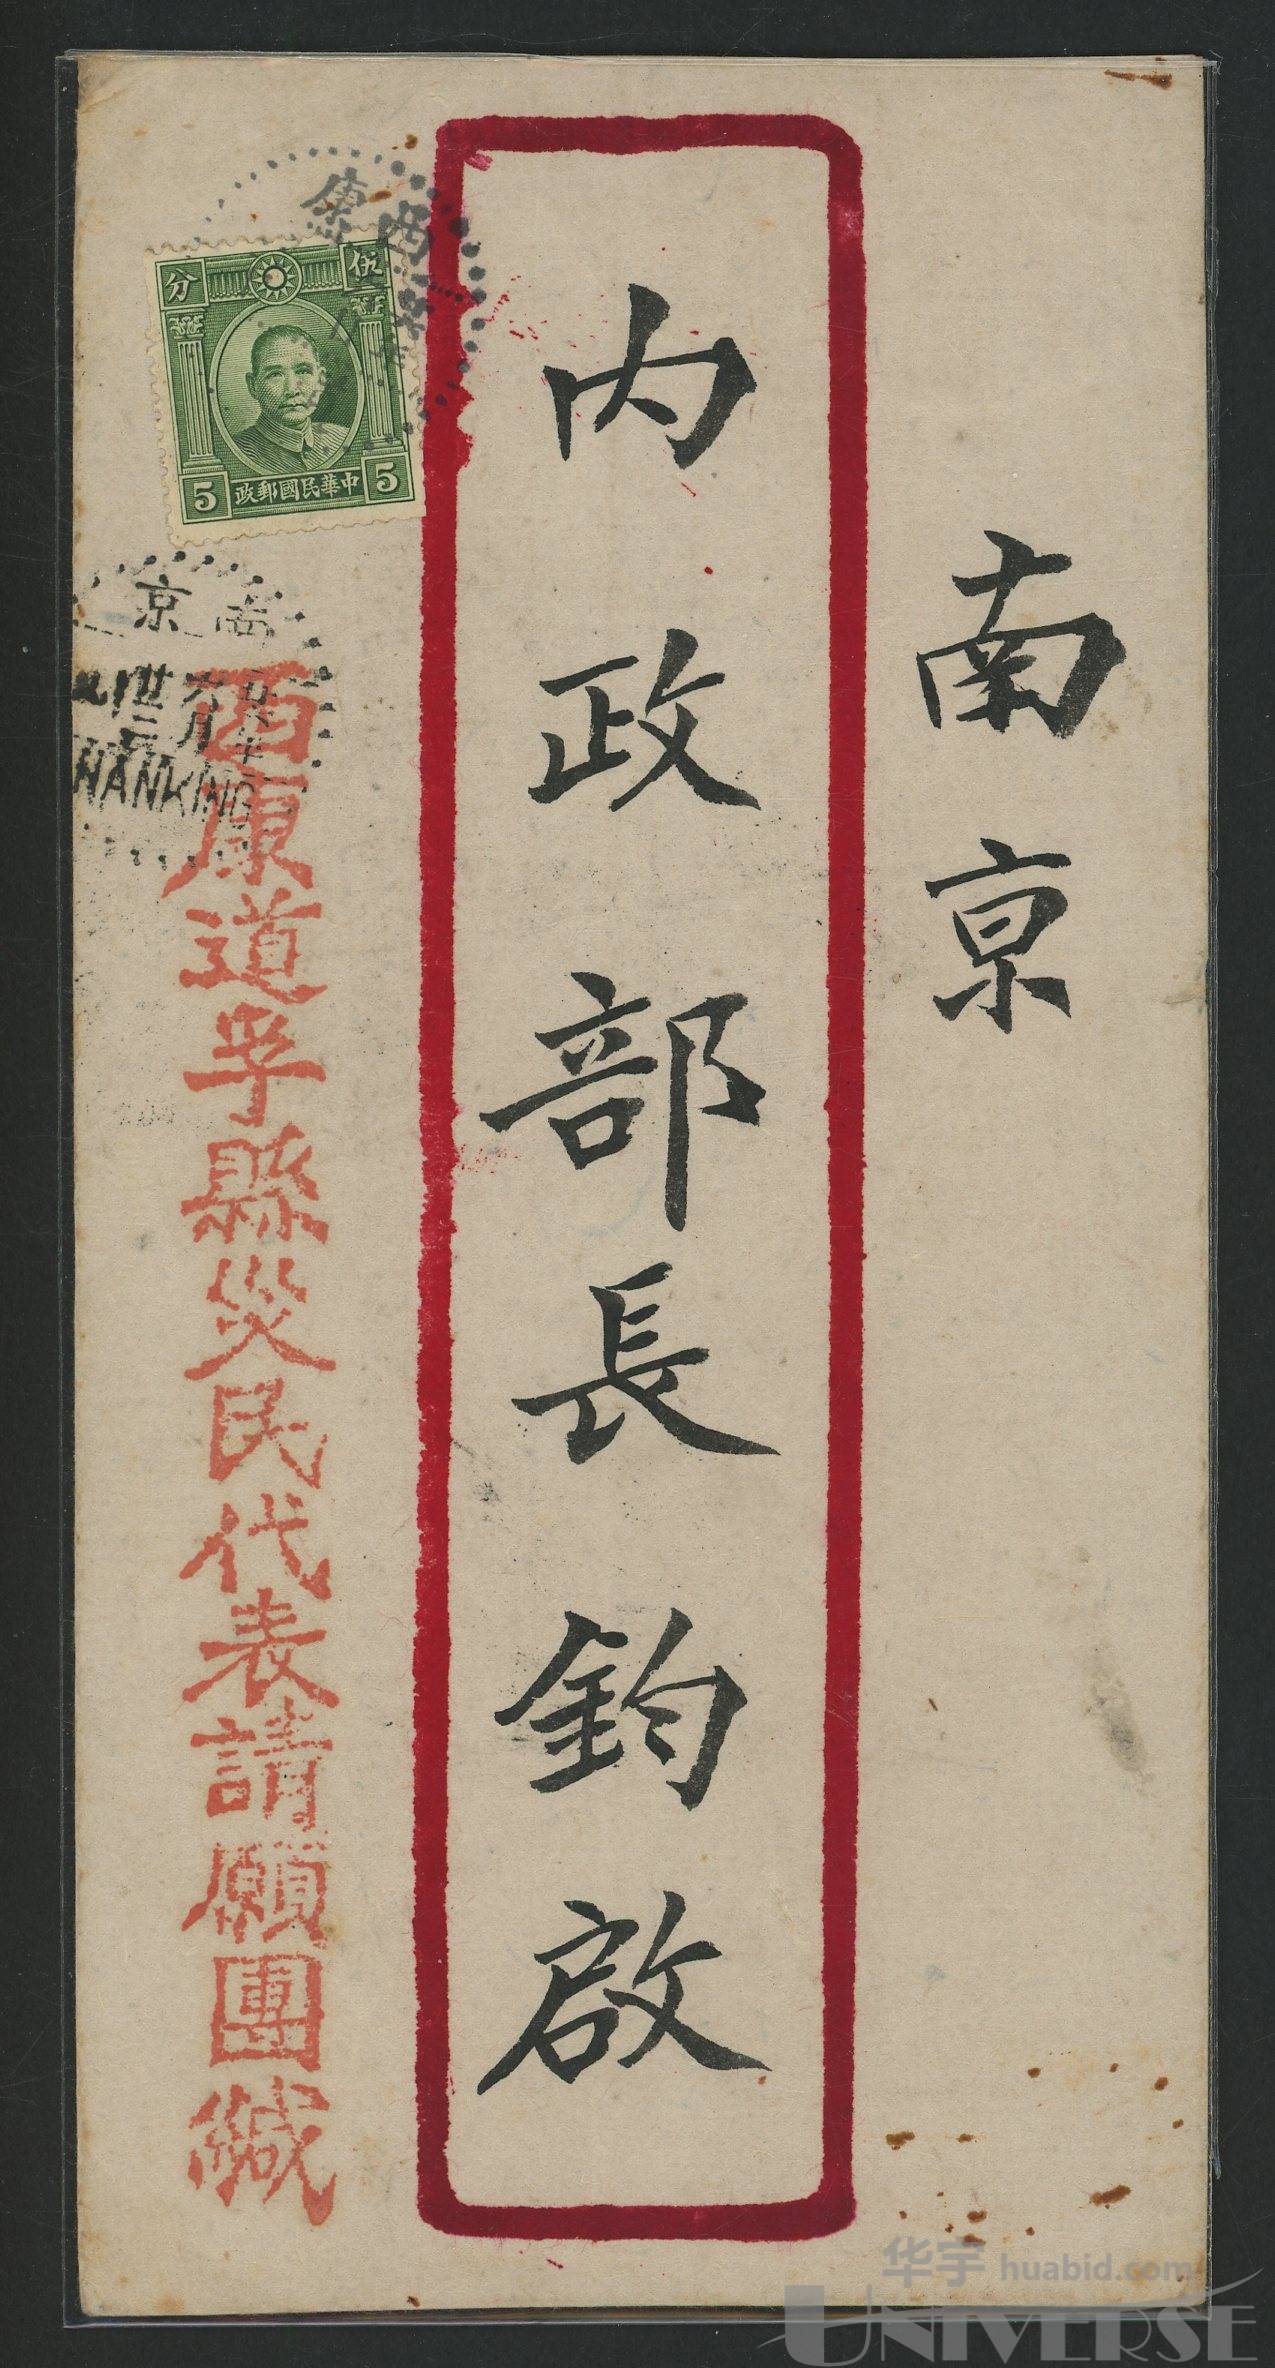 南京
內政部長鈞啟
西康道孚縣災民代表請願團緘
伍 分
中華民國郵政
5 5
西康
南京
六月
廿三
NANKING
华宇 huabid.com
UNIVERSE